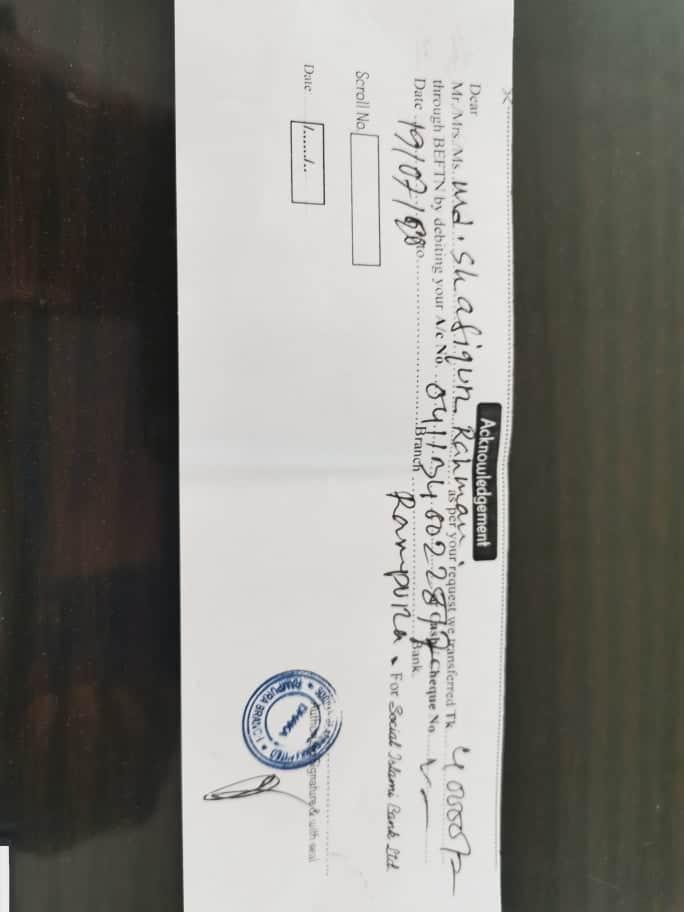 Acknowledgement
Dear
Mr./Mrs./Ms. Md. Shafiqur Rahman as per your request we transferred Tk 40000/=
through BEFTN by debiting your A/c No. Cash/Cheque No.
Date 19/07/ to Branch Rampura Bank
For Social Islami Bank Ltd
Scroll No.
Date /....../..
Signature & with seal
RAMPURA BRANCH
DHAKA